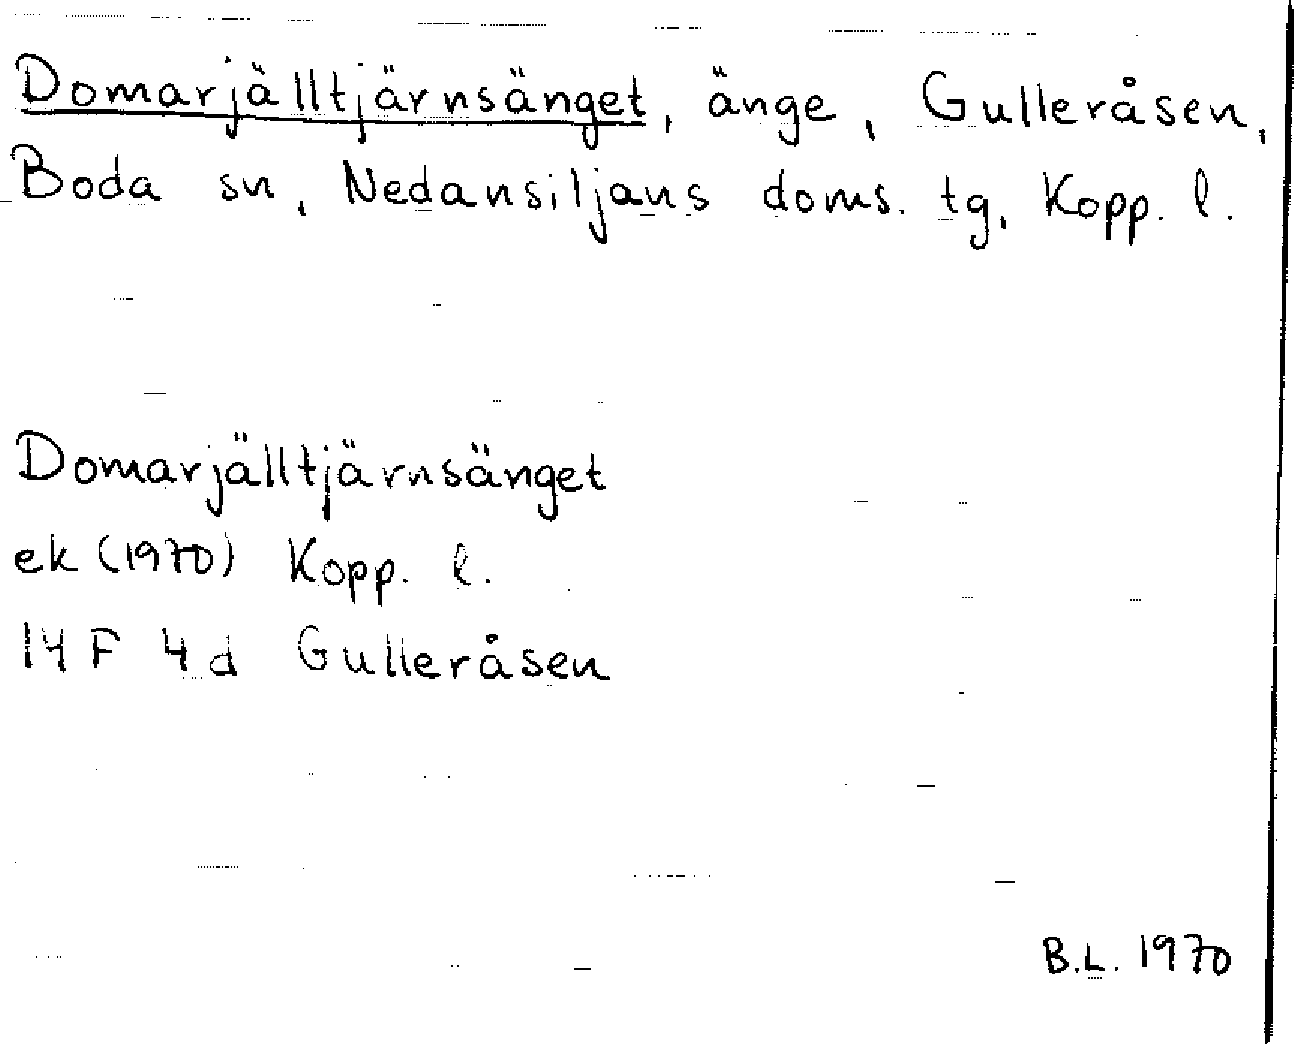 Domarjälltjärnsänget, änge, Gulleråsen,
Boda sn, Nedansiljans doms. tg, Kopp. l.
Domarjälltjärnsänget
ek (1970) Kopp. l.
14 F 4 d Gulleråsen
B.L. 1970